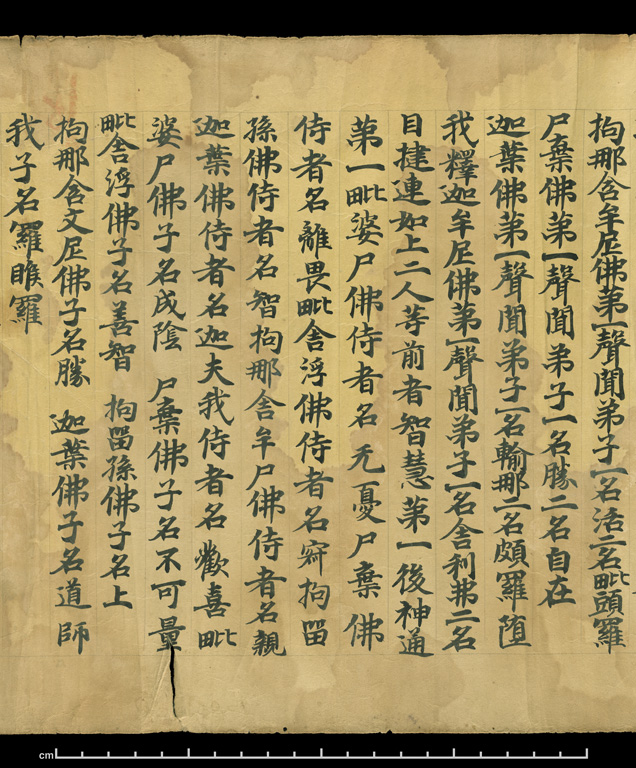 拘那含牟尼佛第一聲聞弟子一名活二名毗頭羅
尸棄佛第一聲聞弟子一名勝二名自在
迦葉佛第一聲聞弟子一名輸那二名頗羅堕
我釋迦牟尼佛第一聲聞弟子一名舍利弗二名
目揵連如上二人等前者智慧第一後神通
第一毗婆尸佛侍者名无憂尸棄佛
侍者名離畏毗舍浮佛侍者名㝛拘留
孫佛侍者名智拘那含牟尸佛侍者名親
迦葉佛侍者名迦夫我侍者名歡喜毗
婆尸佛子名成陰 尸棄佛子名不可量
毗舍浮佛子名善智 拘留孫佛子名上
拘那含文尼佛子名勝 迦葉佛子名道師
我子名羅睺羅
cm